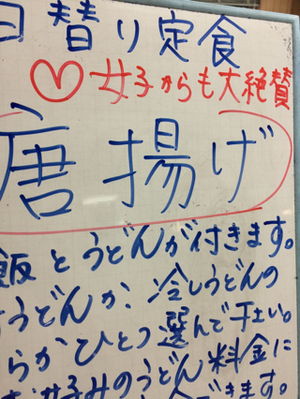 日替り定食
♡女子からも大絶賛
唐揚げ
飯とうどんが付きます。
うどんか、冷しうどんの
らかひとつ選んで下さい。
お好みのうどん料金に
できます。